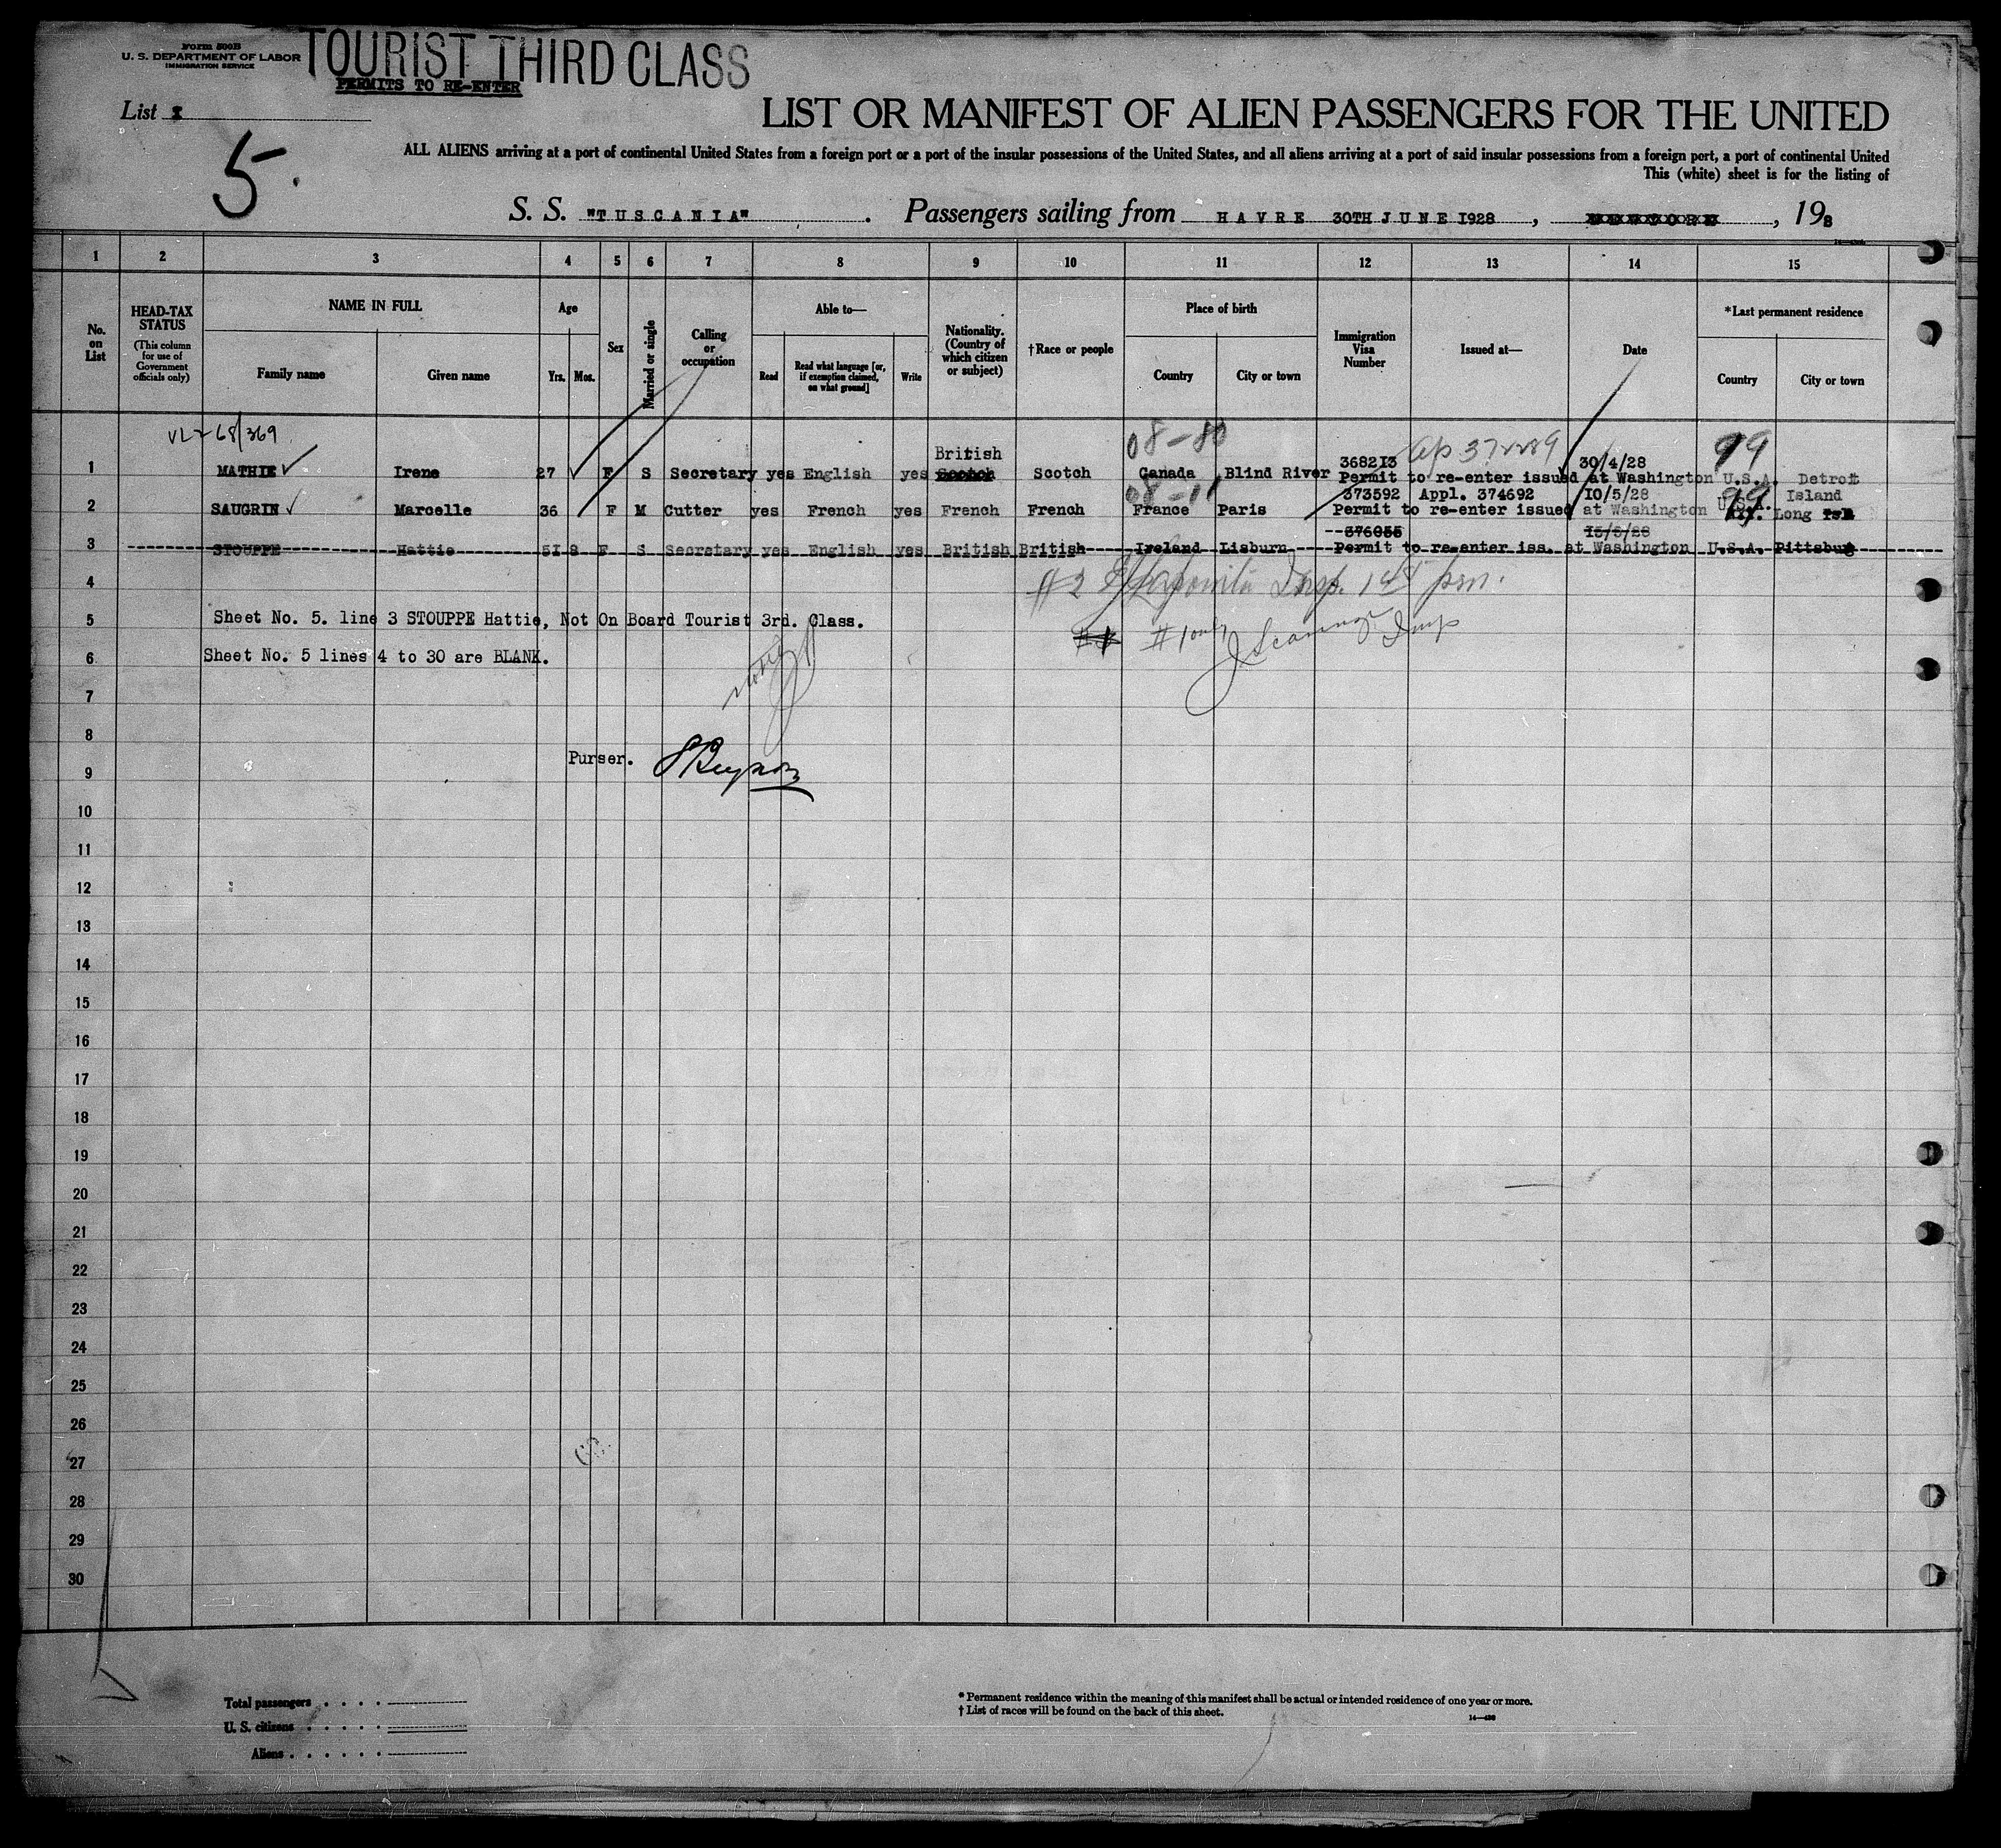 Form 500B
U. S. DEPARTMENT OF LABOR
IMMIGRATION SERVICE
TOURIST THIRD CLASS
PERMITS TO RE-ENTER
List
5.
LIST OR MANIFEST OF ALIEN PASSENGERS FOR THE UNITED
ALL ALIENS arriving at a port of continental United States from a foreign port or a port of the insular possessions of the United States, and all aliens arriving at a port of said insular possessions from a foreign port, a port of continental United
This (white) sheet is for the listing of
S. S. "TUSCANIA" . Passengers sailing from HAVRE 30TH JUNE I928 , , 198
1 2 3 4 5 6 7 8 9 10 11 12 13 14 15
No. on List
HEAD-TAX STATUS (This column for use of Government officials only)
NAME IN FULL
Family name Given name
Age
Yrs. Mos.
Sex
Married or single
Calling or occupation
Able to—
Read Read what language [or, if exemption claimed, on what ground] Write
Nationality. (Country of which citizen or subject)
†Race or people
Place of birth
Country City or town
Immigration Visa Number
Issued at—
Date
*Last permanent residence
Country City or town
08-80 99
British 368213 30/4/28
1 MATHIE Irene 27 F S Secretary yes English yes Scotch Scotch Canada Blind River Permit to re-enter issued at Washington U.S.A. Detroit
08-11 373592 Appl. 374692 I0/5/28 U.S.A. Island
2 SAUGRIN Marcelle 36 F M Cutter yes French yes French French France Paris Permit to re-enter issued at Washington Long Isl
376055 I5/5/28
3 STOUPPE Hattie 5I S F S Secretary yes English yes British British Ireland Lisburn Permit to re-enter iss. at Washington U.S.A. Pittsburg
4
5 Sheet No. 5. line 3 STOUPPE Hattie, Not On Board Tourist 3rd. Class.
#1 only
6 Sheet No. 5 lines 4 to 30 are BLANK.
7
8
Purser.
9
10
11
12
13
14
15
16
17
18
19
20
21
22
23
24
25
26
27
28
29
30
Total passengers . . . . .
U. S. citizens . . . . .
Aliens . . . . . .
* Permanent residence within the meaning of this manifest shall be actual or intended residence of one year or more.
† List of races will be found on the back of this sheet.